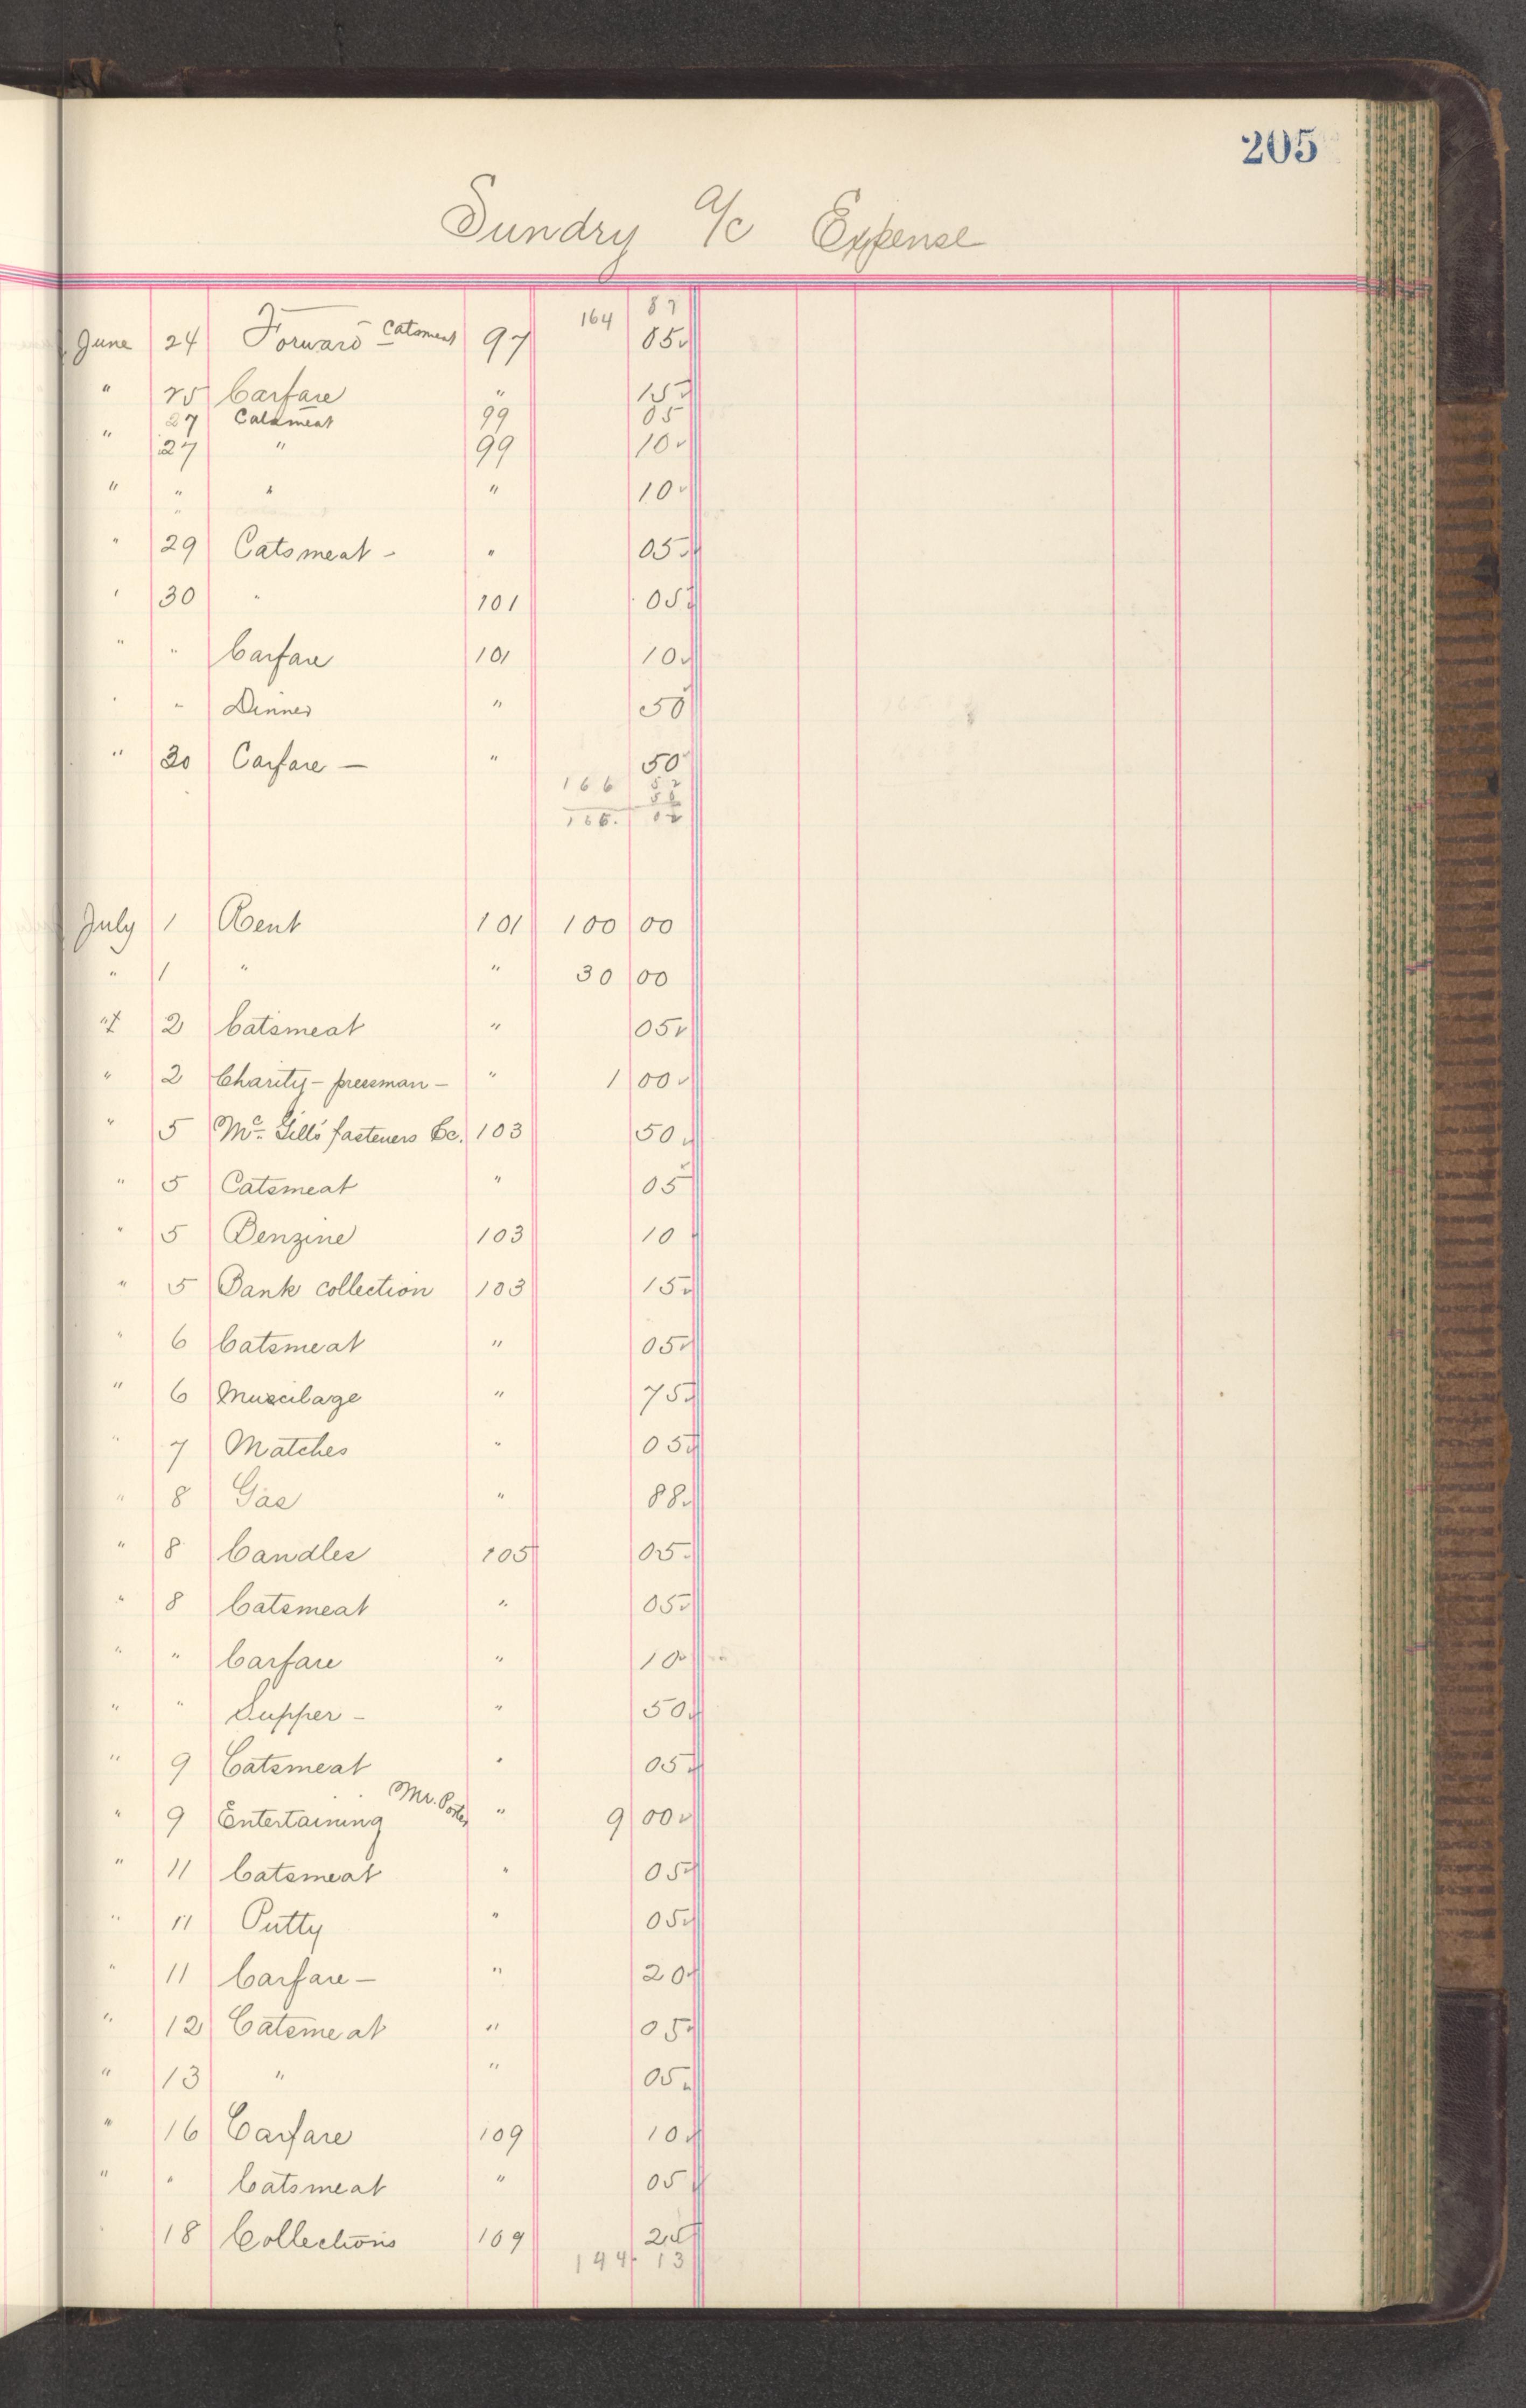 205
Sundry a/c Expense
164 87
June 24 Forward - Catsmeat 97 05
" 25 Carfare " 15
27 Catsmeat 99 05
" 27 " 99 10
" " " " 10
" 29 Catsmeat - " 05
" 30 " 101 05
" " Carfare 101 10
" " Dinner " 50
" 30 Carfare — " 50
166 52
50
166. 02
July 1 Rent 101 100 00
" 1 " " 30 00
" 2 Catsmeat " 05
" 2 Charity - pressman - " 1 00
" 5 Mc. Gill's fasteners &c. 103 50
" 5 Catsmeat " 05
" 5 Benzine 103 10
" 5 Bank collection 103 15
" 6 Catsmeat " 05
" 6 Muscilage " 75
" 7 Matches " 05
" 8 Gas " 88
" 8 Candles 105 05
" 8 Catsmeat " 05
" " Carfare " 10
" " Supper - " 50
" 9 Catsmeat " 05
" 9 Entertaining Mr. Porter " 9 00
" 11 Catsmeat " 05
" 11 Putty " 05
" 11 Carfare — " 20
" 12 Catsmeat " 05
" 13 " " 05
" 16 Carfare 109 10
" " Catsmeat " 05
18 Collections 109 25
144 13